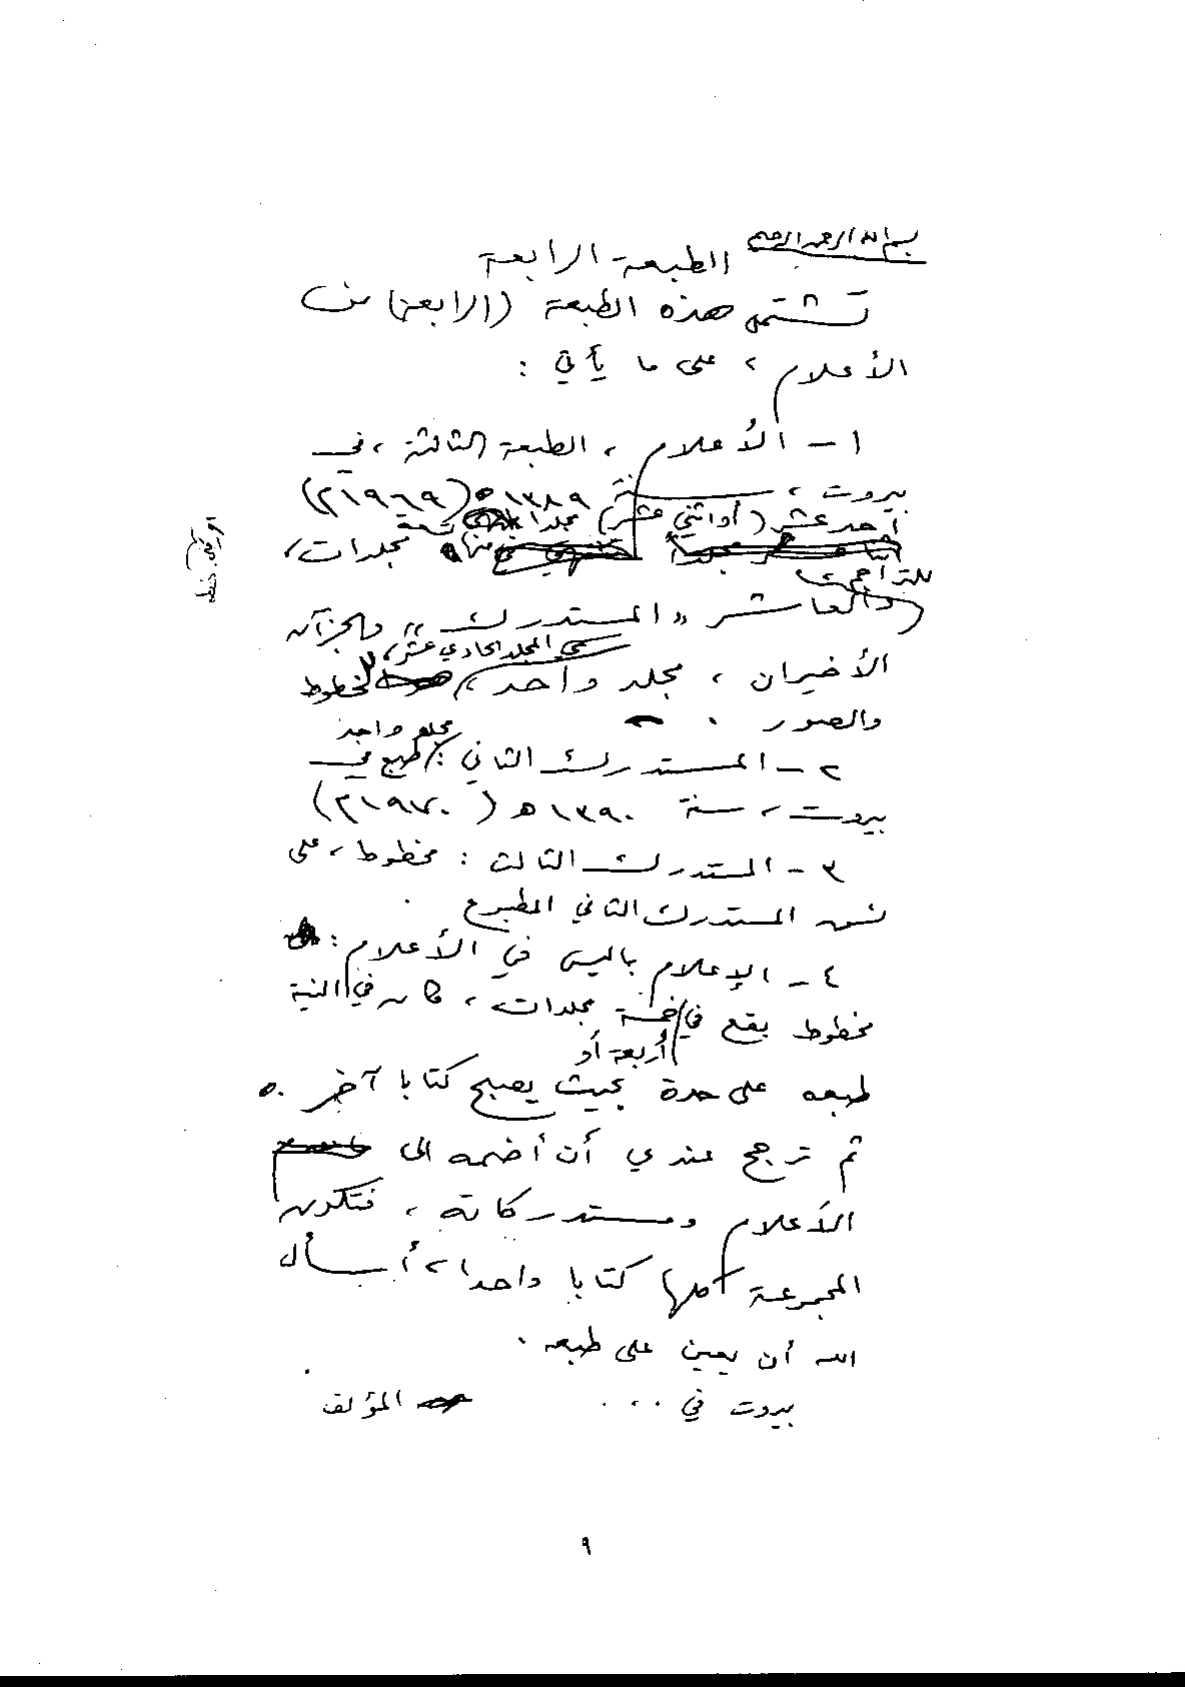 بسم الله الرحمن الرحيم
الطبعة الرابعة
تشتمل هذه الطبعة (الرابعة) من
الأعلام ، على ما يأتي :
١ - الأعلام ، الطبعة الثالثة ، في
بيروت ، سنة ١٣٨٩ ه (١٩٦٩ م)
أحد عشر (أو اثني عشر) مجلدا
منها تسعة مجلدات ،
للتراجم ،
والعاشر « المستدرك » والجزآن
الأخيران ، مجلد واحد ،
سمي المجلد الحادي عشر ، للخطوط
والصور .
٢ - المستدرك الثاني : مجلد واحد طبع في
بيروت ، سنة ١٣٩٠ ه (١٩٧٠ م)
٣ - المستدرك الثالث : مخطوط ، على
نسق المستدرك الثاني المطبوع .
٤ - الإعلام بما ليس في الأعلام :
مخطوط يقع في أربعة أو خمسة مجلدات ، كان في النية
طبعه على حدة بحيث يصبح كتابا آخر .
ثم ترجح عندي أن أضمه الى
الأعلام ومستدركاته ، فتكون
المجموعة كلها كتابا واحدا ، أسأل
الله أن يعين على طبعه .
بيروت في ... المؤلف
٩